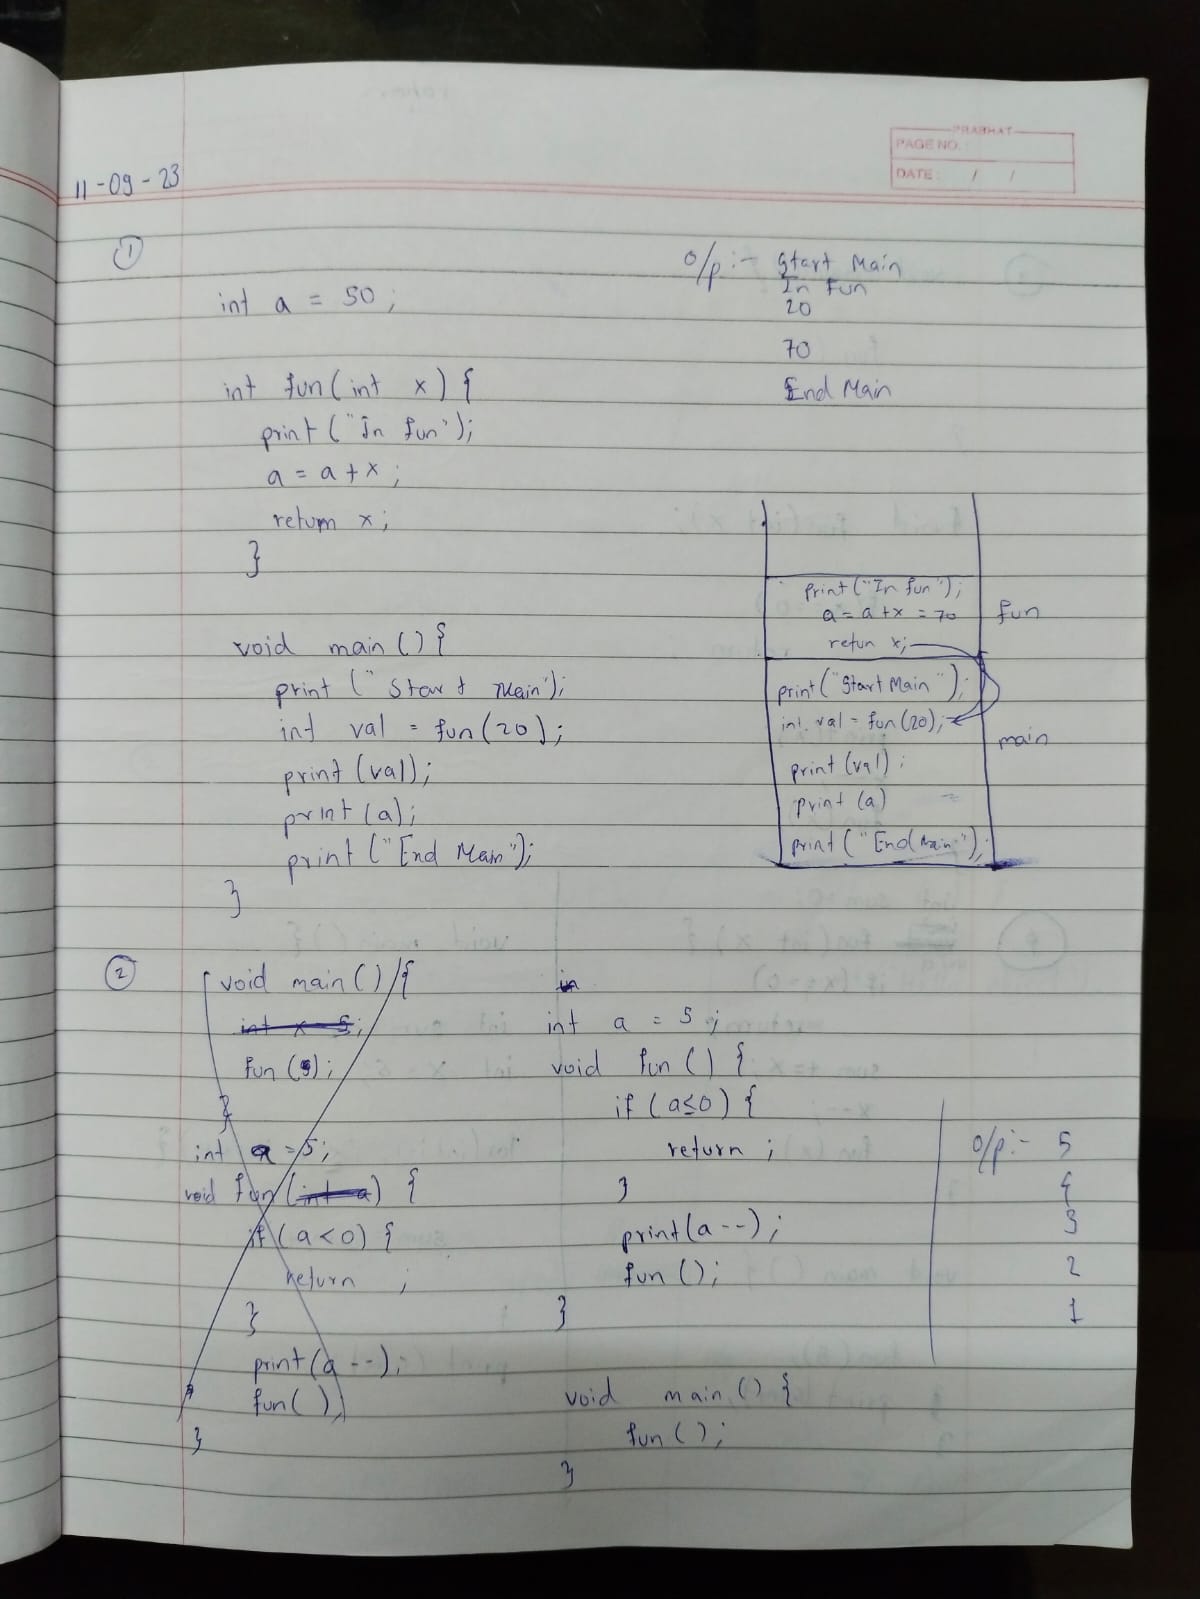 PRABHAT
PAGE NO. :
DATE : / /
11-09-23
①
int a = 50;
int fun(int x) {
print("In fun");
a = a + x;
return x;
}
void main() {
print("Start Main");
int val = fun(20);
print(val);
print(a);
print("End Main");
}
o/p :- Start Main
In Fun
20
70
End Main
print("In fun");
a = a + x = 70
retun x;
fun
print("Start Main");
int. val = fun(20);
print(val);
print(a)
print("End Main");
main
②
void main() {
int x = 5;
fun(5);
}
int a = 5;
void fun(int a) {
if (a<0) {
return ;
}
print(a--);
fun();
}
in
int a = 5;
void fun() {
if (a≤0) {
return ;
}
print(a--);
fun();
}
void main() {
fun();
}
o/p :- 5
4
3
2
1